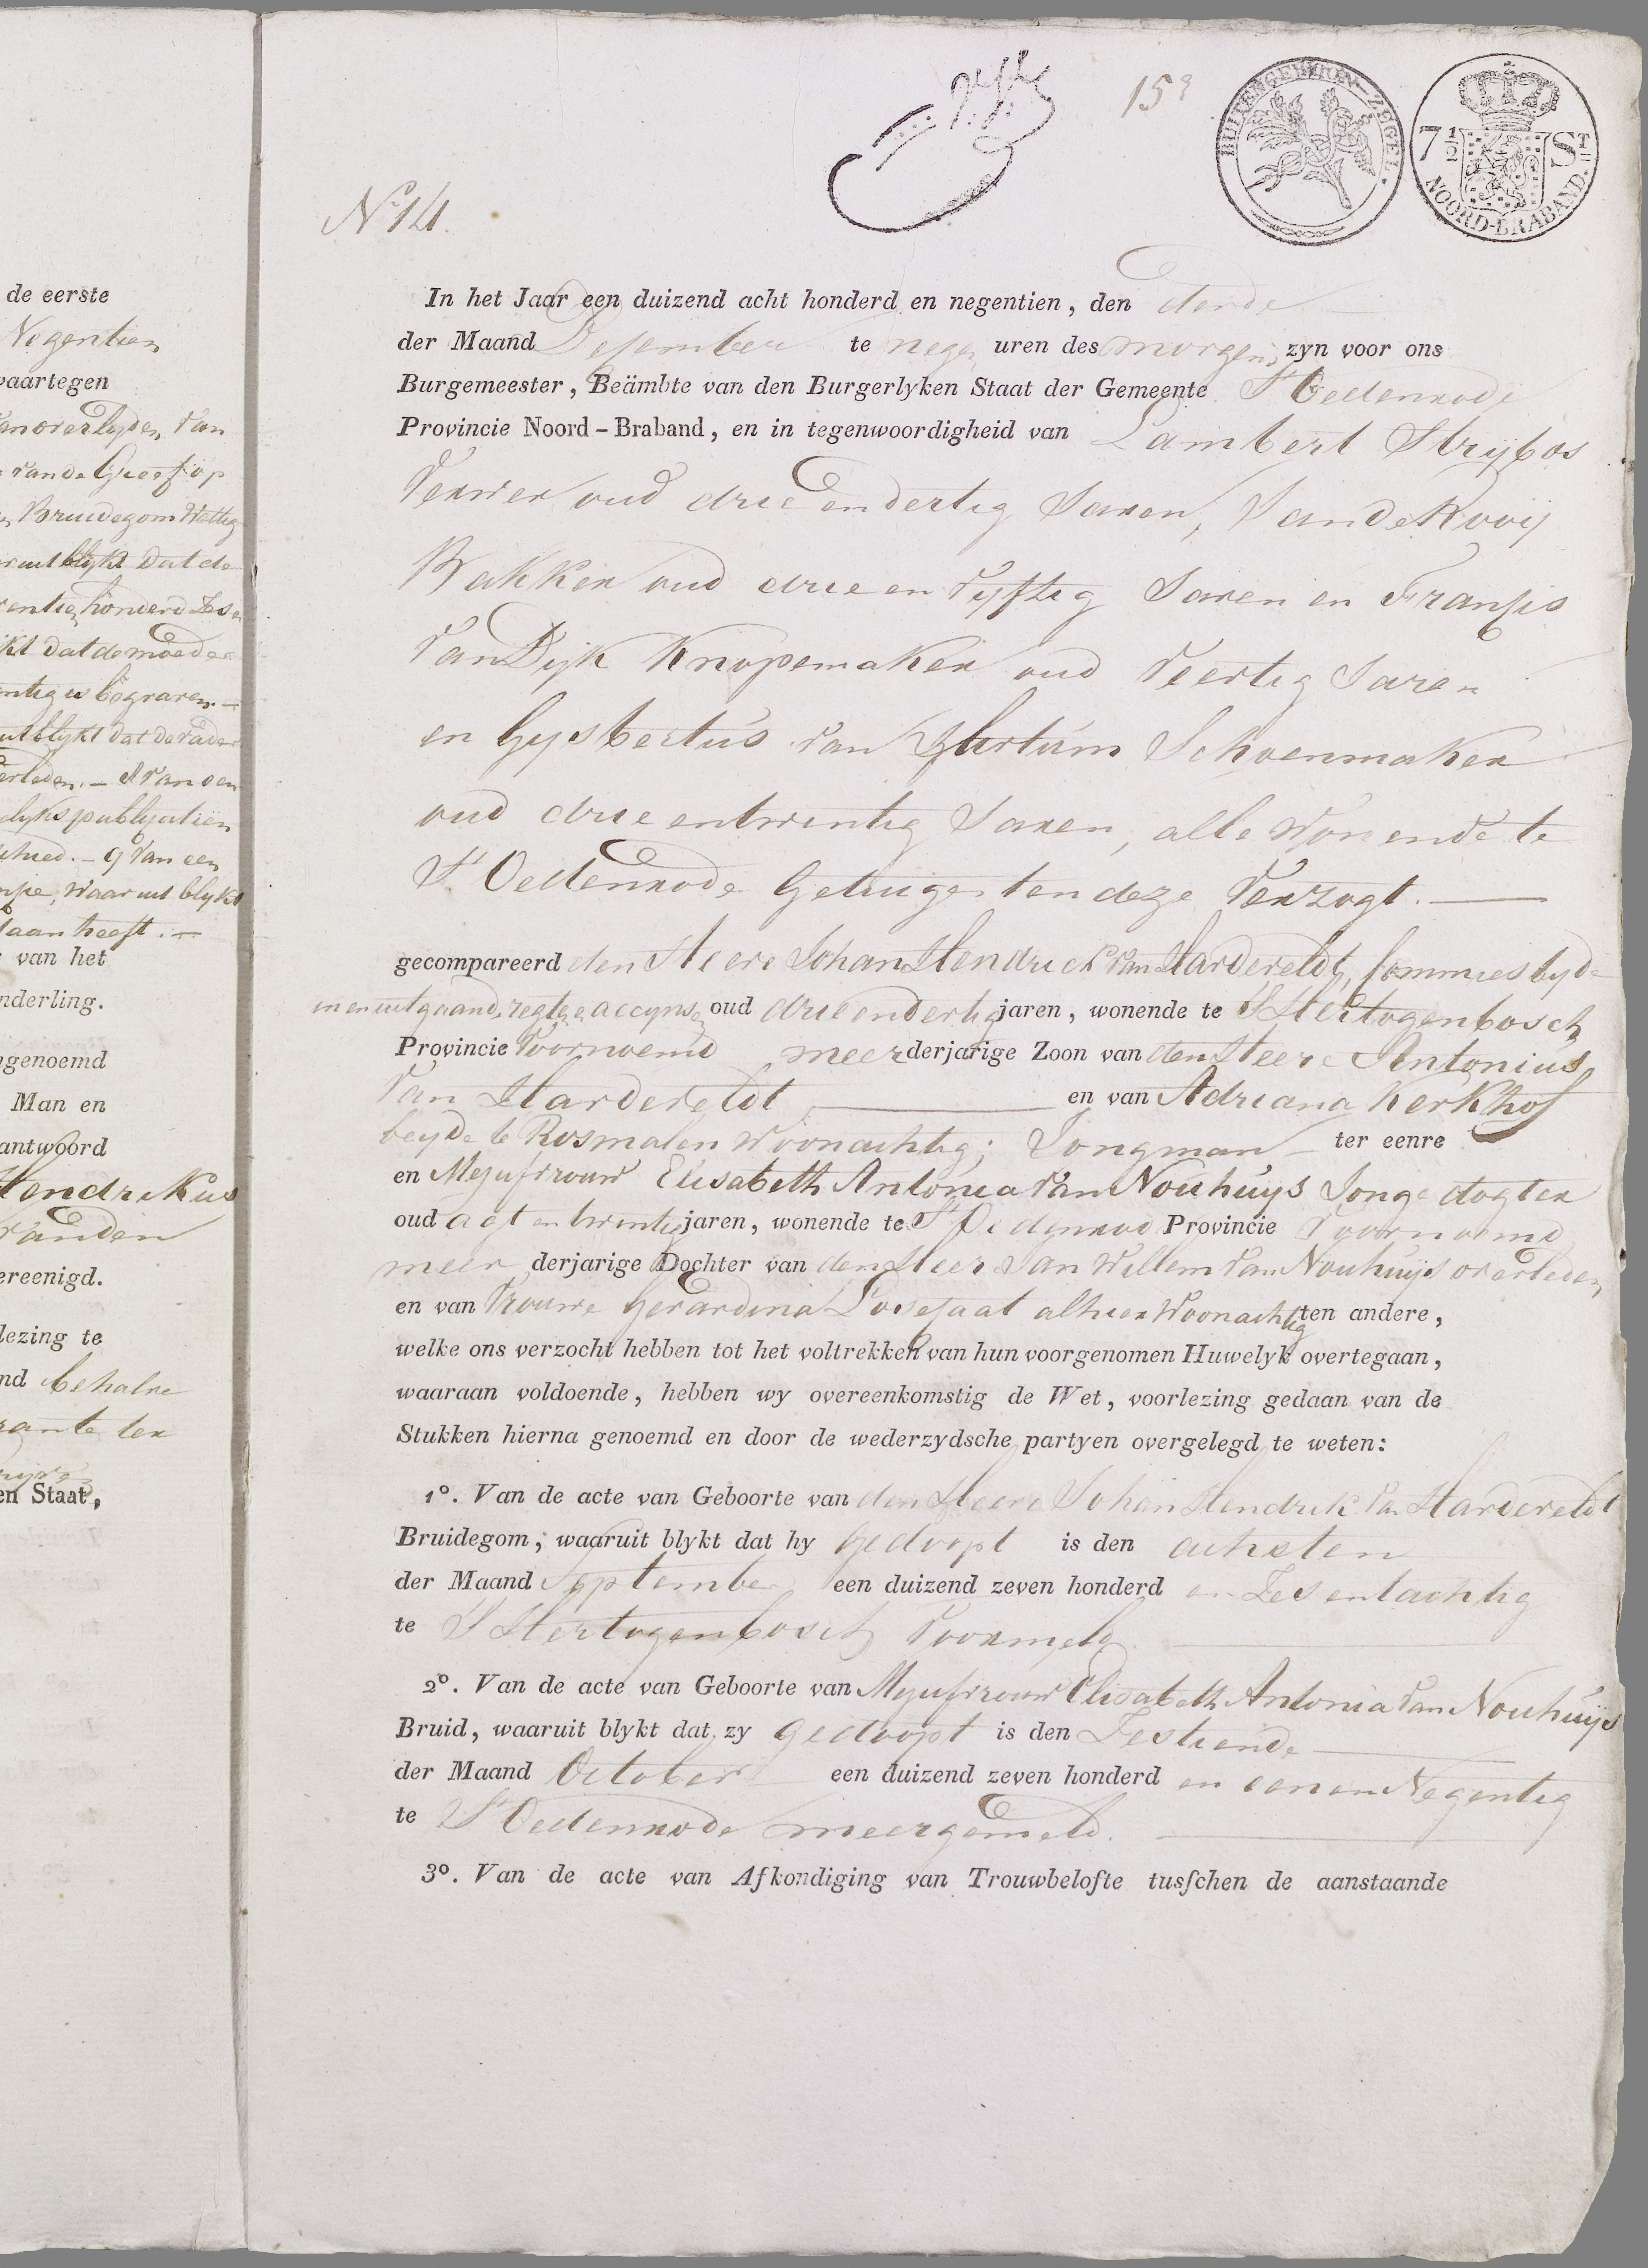 de eerste
Negentien
vaartegen
van overlyden van
van de Greef op
Bruidegom Wettig
uit blykt dat de
honderd Zes
kt dat de moeder
entig is begraven. —
uit blykt dat de vader
erleden. — van een
lyks publicatiën
hied. — 9 van een
waar uit blykt
daan heeft. —
van het
nderling.
ngenoemd
Man en
antwoord
Hendrikus
vanden
ereenigd.
lezing te
nd behalve
rante ter
en Staat,
15
BUITENGEWOON-ZEGEL.
7½ St.
NOORD-BRABAND.
No 14.
In het Jaar een duizend acht honderd en negentien, den derde
der Maand Desember te nege uren des morgens zyn voor ons
Burgemeester, Beämbte van den Burgerlyken Staat der Gemeente St Oedenrode
Provincie Noord-Braband, en in tegenwoordigheid van Lambert Strijbos
Verwer oud drie en dertig Jaren, Jan de Rooij
Bakker oud drie en vyftig Jaren en Fransis
van Dijk Knopemaker oud Veertig Jaren
en Gysbertus van Schoenmaker
oud drie entwintig Jaren, alle Wonende te
St Oedenrode Getuigen ten deze Verzogt. —
gecompareerd den Heere Johan Hendrick van Hardeveldt, Commies by de
in en uitgaande regte e accynse oud drie en dertig jaren, wonende te S Hertogenbosch
Provincie Voornoemd meerderjarige Zoon van den Heere Antonius
van Hardeveldt — en van Adriana Kerkhof
beyde te Rosmalen Woonachtig; Jongman — ter eenre
en Mejufvrouw Elisabeth Antonia van Nouhuys Jonge dogter
oud agt en twintig jaren, wonende te St Oedenrod Provincie Voornoemd
meer derjarige Dochter van den Heer Jan Willem van Nouhuys overleden
en van Vrouwe Gerardina Losecaat alhier Woonachtig ten andere,
welke ons verzocht hebben tot het voltrekken van hun voorgenomen Huwelyk overtegaan,
waaraan voldoende, hebben wy overeenkomstig de Wet, voorlezing gedaan van de
Stukken hierna genoemd en door de wederzydsche partyen overgelegd te weten:
1o. Van de acte van Geboorte van den Heere Johan Hendrik van Hardeveldt
Bruidegom, waaruit blykt dat hy gedoopt is den achsten
der Maand September een duizend zeven honderd en Zes entachtig
te S Hertogenbosch voormeld. —
2o. Van de acte van Geboorte van Mejufvrouw Elisabeth Antonia van Nouhuijs
Bruid, waaruit blykt dat zy gedoopt is den Zestiende —
der Maand October een duizend zeven honderd en een en Negentig
te St Oedenrode meergemeld. —
3o. Van de acte van Afkondiging van Trouwbelofte tusschen de aanstaande